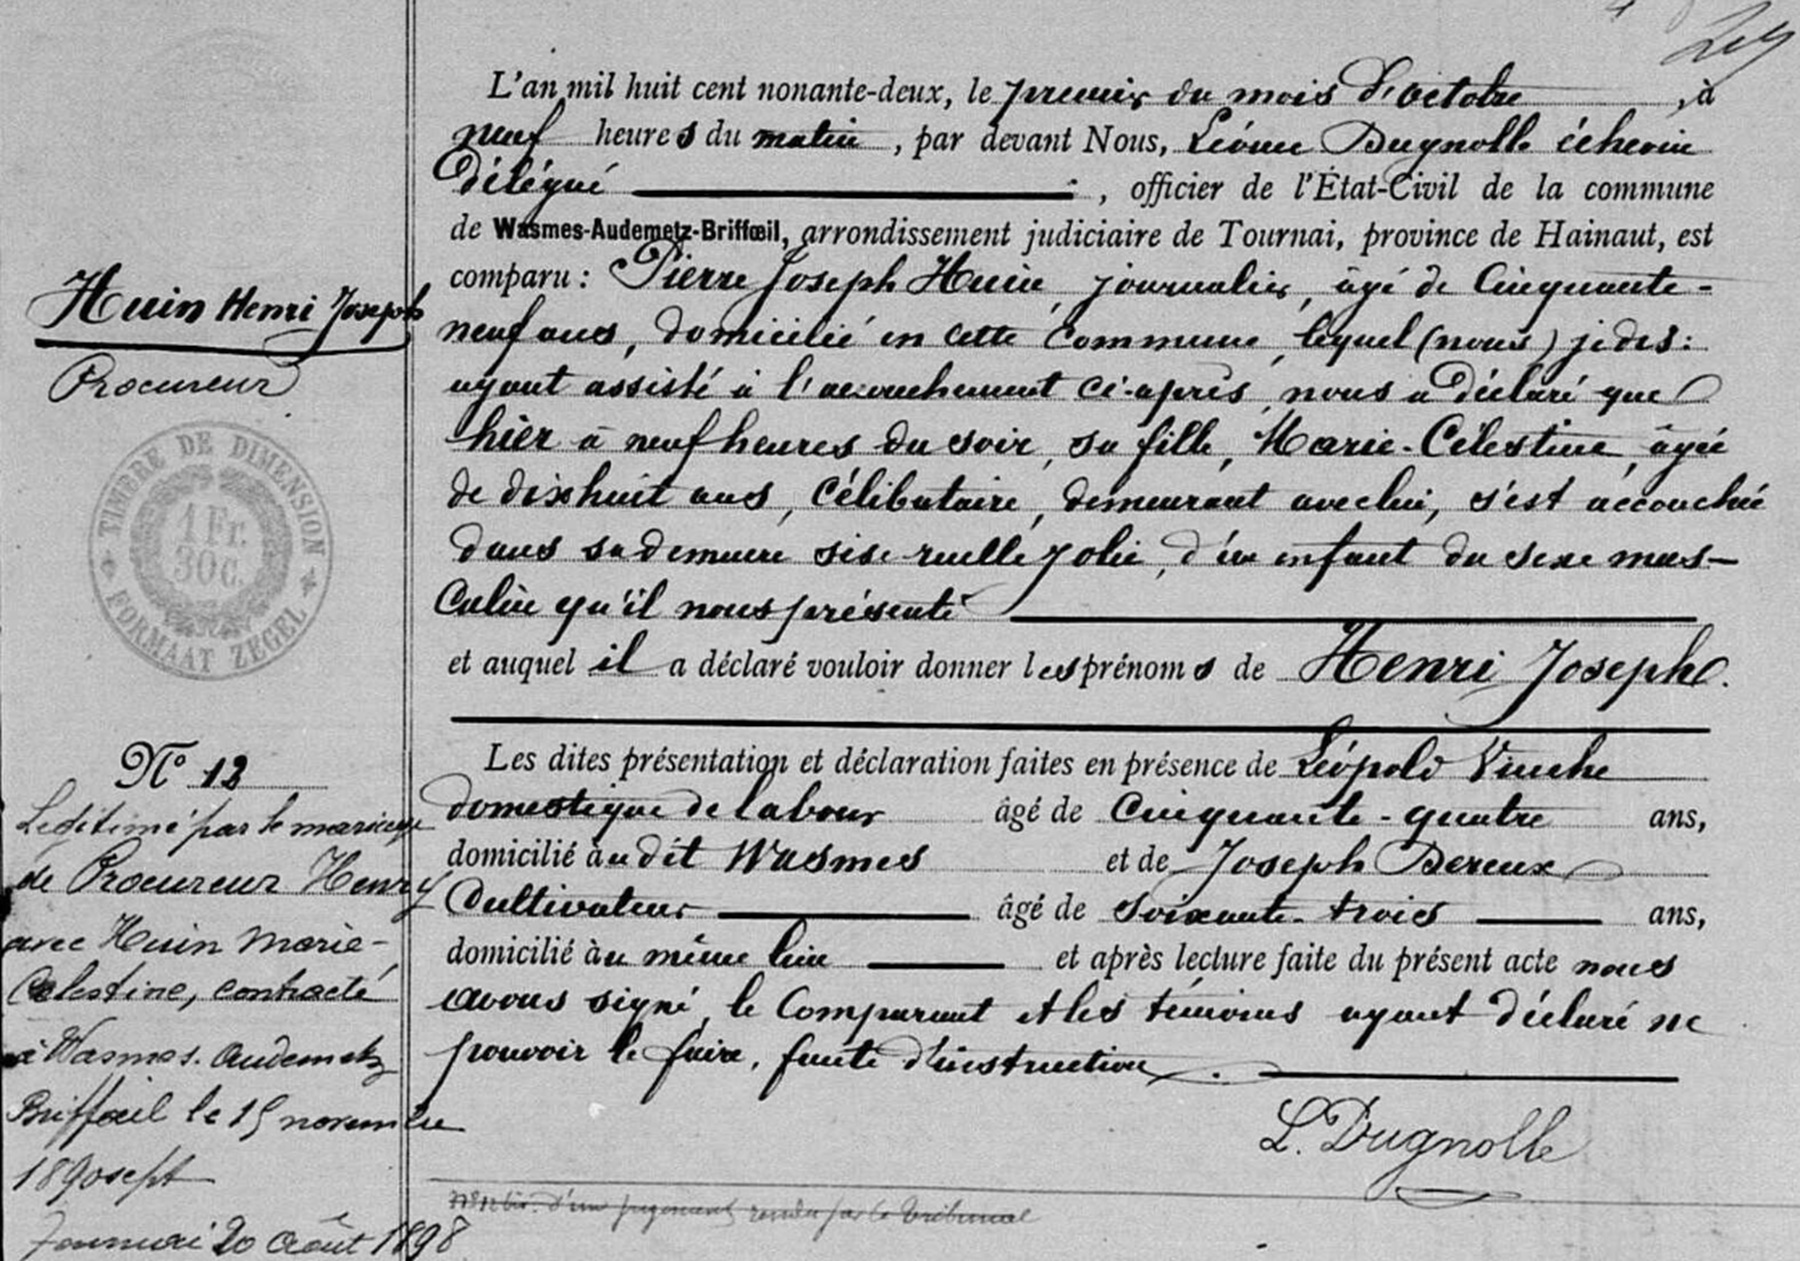 L'an mil huit cent nonante-deux, le premier du mois d'octobre, à
neuf heures du matin, par devant Nous, Léonce Dugnolle échevin
délégué, officier de l'État-Civil de la commune
de Wasmes-Audemetz-Briffœil, arrondissement judiciaire de Tournai, province de Hainaut, est
comparu : Pierre Joseph Huin, journalier, âgé de Cinquante-
neuf ans, domicilié en cette Commune, lequel (nous) jedis:
ayant assisté à l'accouchement ci-après, nous a déclaré que
hier à neuf heures du soir, sa fille, Marie-Célestine, âgée
de dixhuit ans, Célibataire, demeurant avec lui, s'est accouchée
dans sa demeure sise ruelle Jolie, d'un enfant du sexe mas-
culin qu'il nous présente
et auquel il a déclaré vouloir donner les prénoms de Henri Joseph.
Les dites présentation et déclaration faites en présence de Léopold Vinche
domestique de labour âgé de Cinquante-quatre ans,
domicilié au dit Wasmes et de Joseph Dereux
Cultivateur âgé de Soixante-trois ans,
domicilié au même lieu et après lecture faite du présent acte nous
avons signé, le Comparant et les témoins ayant déclaré ne
pouvoir le faire, faute d'instruction.
L. Dugnolle
d'un jugement rendu par le Tribunal
Huin Henri Joseph
Procureur
TIMBRE DE DIMENSION
1 Fr.
30 c.
FORMAAT ZEGEL
N° 12
Légitimé par le mariage
de Procureur Henry
avec Huin Marie-
Célestine, contracté
à Wasmes-Audemetz
Briffœil le 15 novembre
1890sept
20 Août 1898